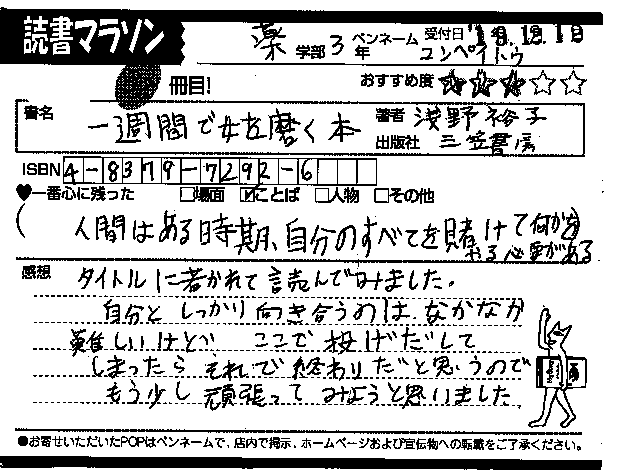 読書マラソン
薬 学部 3 年 ペンネーム コンペイトウ 受付日
冊目! おすすめ度 ★★★☆☆
書名 一週間で女を磨く本 著者 浅野裕子
出版社 三笠書房
ISBN 4-8379-7292-6
♥一番心に残った □場面 ☑ことば □人物 □その他
人間はある時期、自分のすべてを賭けて何かを
やる必要がある
感想 タイトルに惹かれて読んでみました。
自分としっかり向き合うのは、なかなか
難しいけど、ここで投げだして
しまったらそれで終わりだと思うので
もう少し頑張ってみようと思いました
●お寄せいただいたPOPはペンネームで、店内で掲示、ホームページおよび宣伝物への転載をご了承ください。